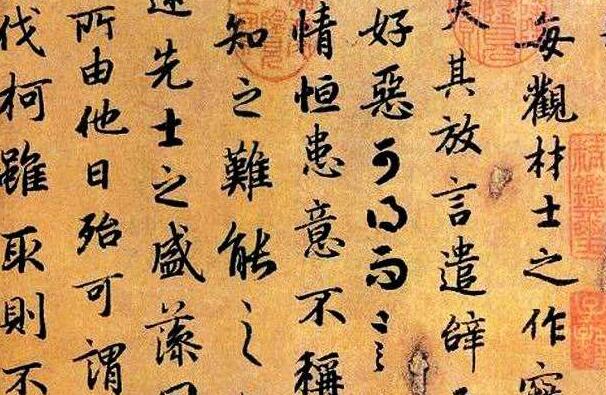 每觀材士之作
夫其放言遣辭
好惡可得而言
情恒患意不稱
知之難能之
述先士之盛藻
所由他日殆可謂
伐柯雖取則不